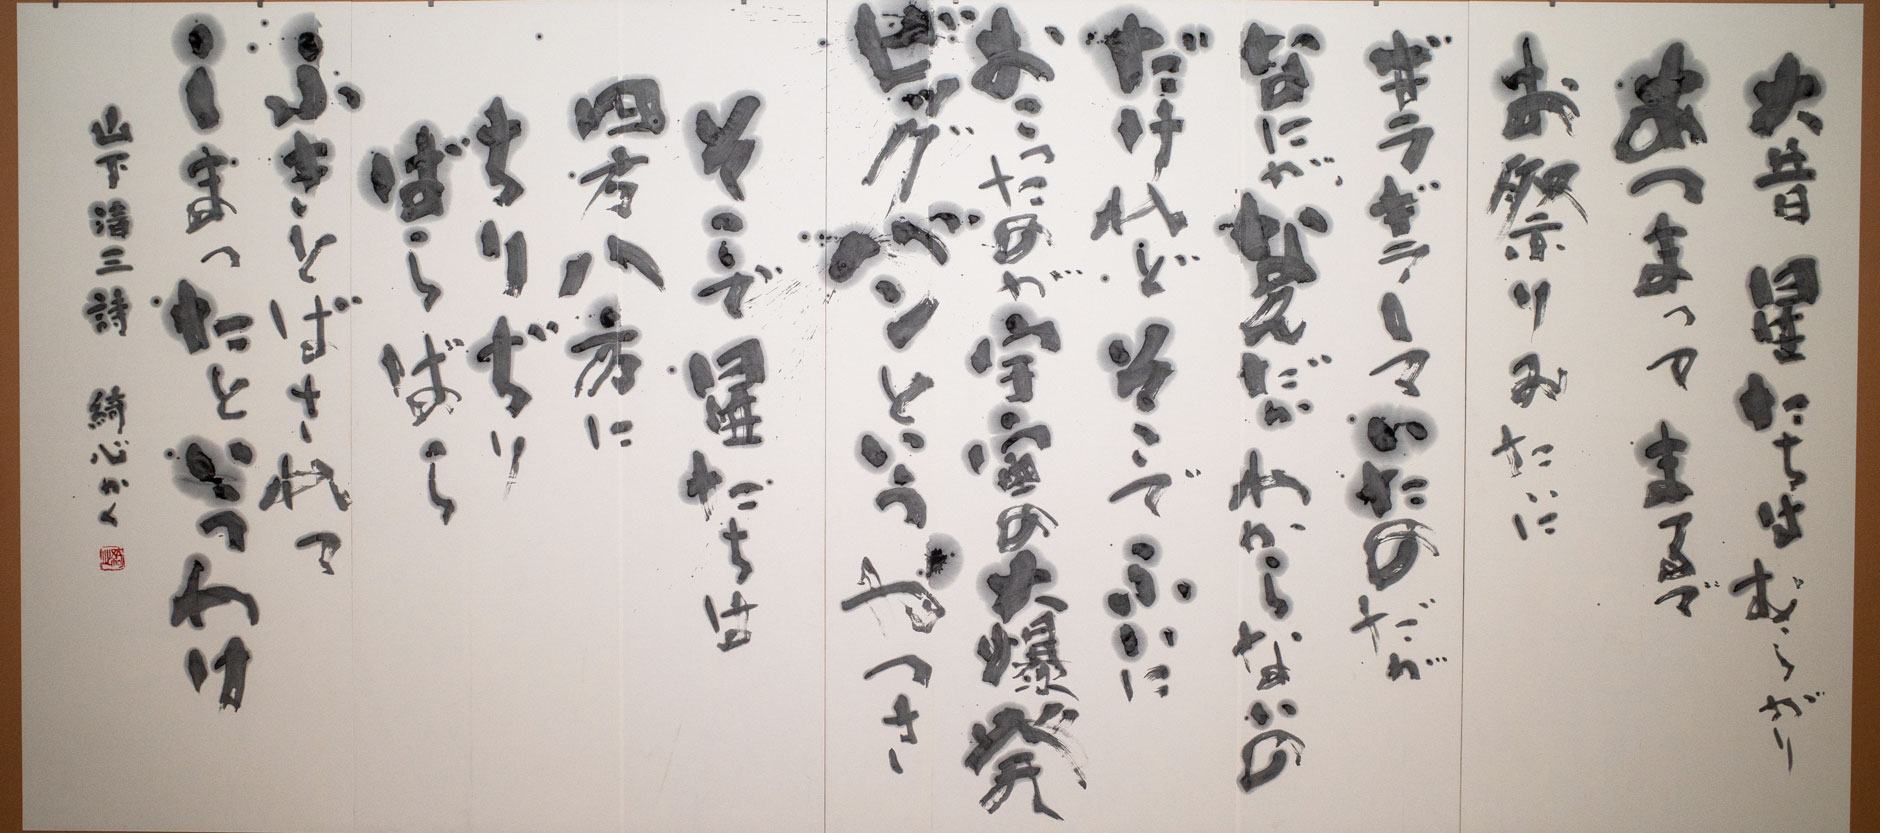 大昔 星たちは むらがり
あつまって まるで
お祭りみたいに
ギラギラして いたのだが
なにが なんだか わからないの
だけれど そこで ふいに
おこったのが 宇宙の大爆発
ビッグバンという やつさ
そこで 星たちは
四方八方に
ちりぢり
ばらばら
ふきとばされて
しまったと いうわけ
山下清三詩 綺心かく